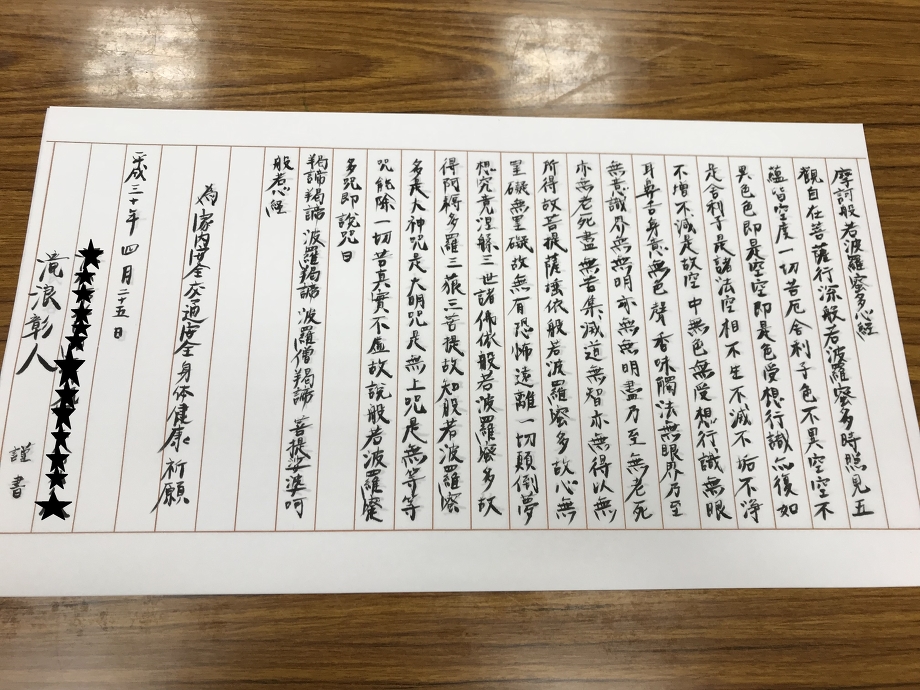 摩訶般若波羅蜜多心経
観自在菩薩行深般若波羅蜜多時照見五
蘊皆空度一切苦厄舎利子色不異空空不
異色色即是空空即是色受想行識亦復如
是舎利子是諸法空相不生不滅不垢不浄
不増不減是故空中無色無受想行識無眼
耳鼻舌身意無色声香味触法無眼界乃至
無意識界無無明亦無無明盡乃至無老死
亦無老死盡無苦集滅道無智亦無得以無
所得故菩提薩埵依般若波羅蜜多故心無
罣礙無罣礙故無有恐怖遠離一切顛倒夢
想究竟涅槃三世諸佛依般若波羅蜜多故
得阿耨多羅三藐三菩提故知般若波羅蜜
多是大神呪是大明呪是無上呪是無等等
呪能除一切苦真實不虚故説般若波羅蜜
多呪即説呪曰
羯諦羯諦 波羅羯諦 波羅僧羯諦 菩提娑婆呵
般若心経
為家内安全交通安全身体健康祈願
平成三十年四月二十五日
滝浪彰人
謹書